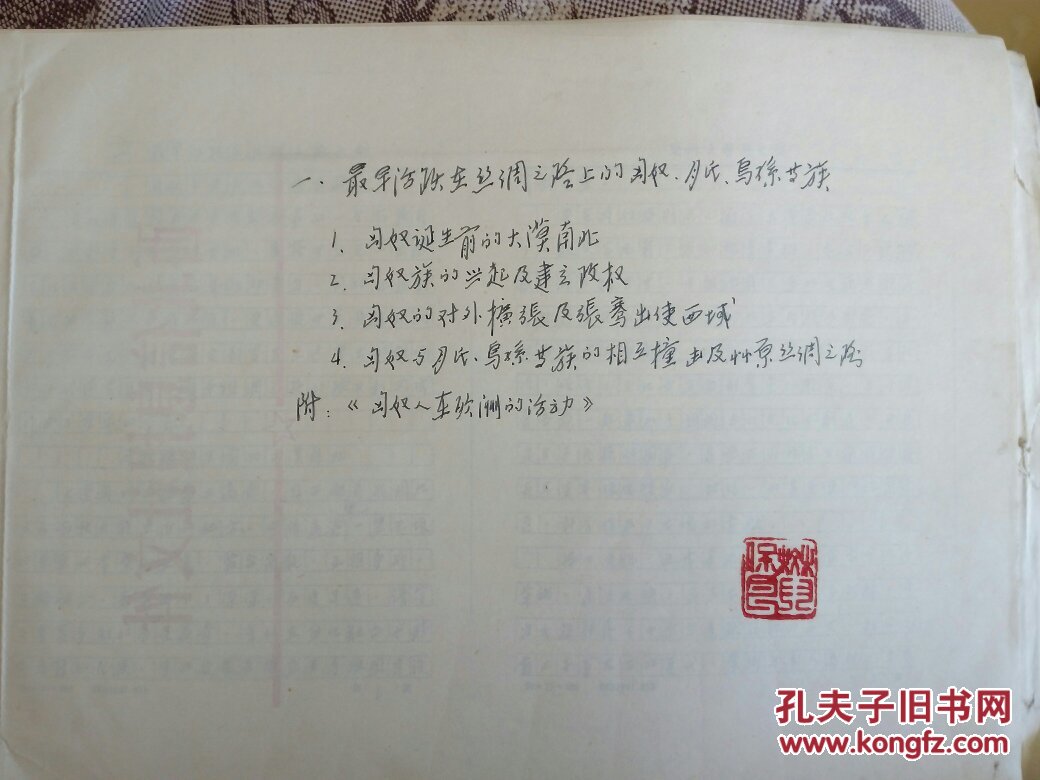 一、最早活跃在丝绸之路上的匈奴、月氏、烏孫等族
1. 匈奴诞生前的大漠南北
2. 匈奴族的兴起及建立政权
3. 匈奴的对外擴張及張骞出使西域
4. 匈奴与月氏、烏孫等族的相互撞击及草原丝绸之路
附：《匈奴人在欧洲的活动》
孔夫子旧书网
www.kongfz.com